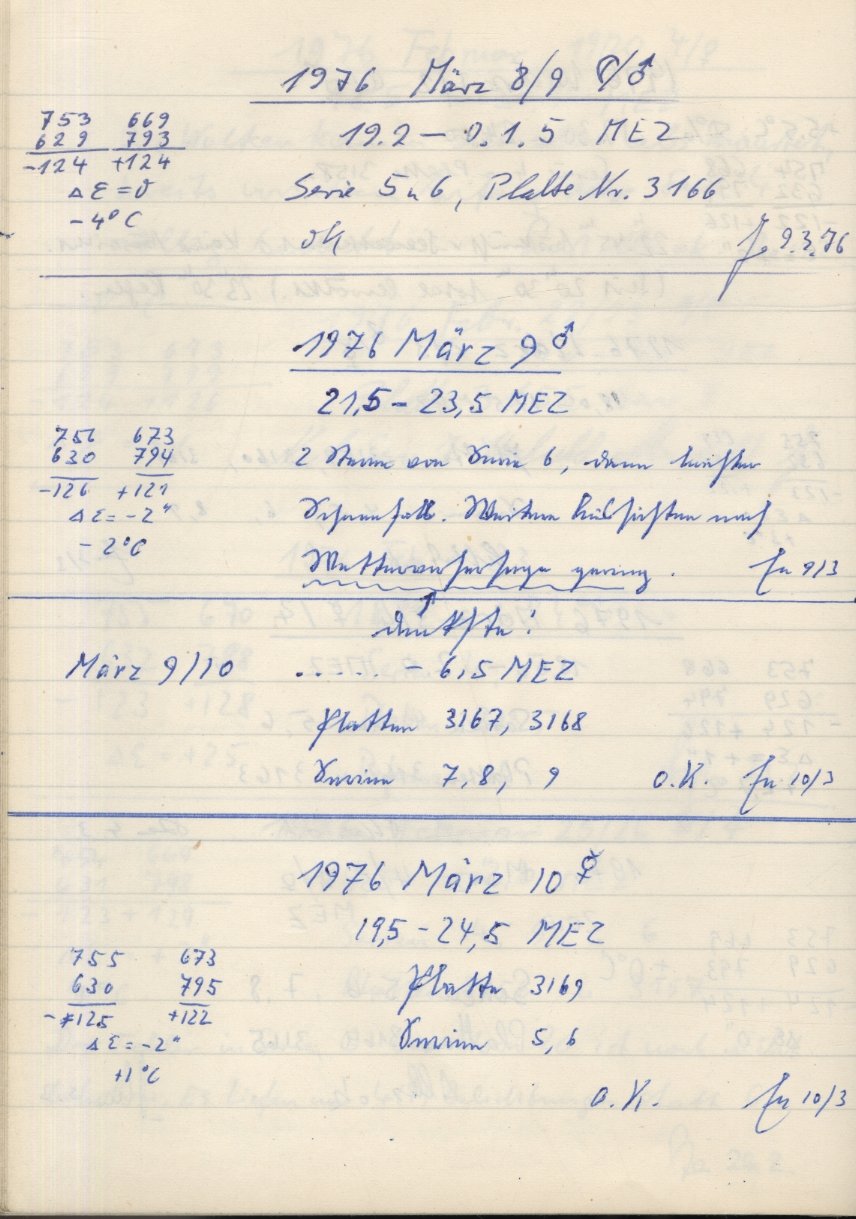 1976 März 8/9 ☾/♂
753 669
629 793
-124 +124
19.2 – 0.1.5 MEZ
Δε = 0
Serie 5 u 6, Platte Nr. 3166
-4°C
ok
9.3.76
1976 März 9 ♂
21,5 – 23,5 MEZ
756 673
630 794
-126 +121
2 Sterne von Serie 6, dann leichter
Δε = -2"
Schneefall. Weitere Aussichten nach
-2°C
Wettervorhersage gering. 9/3
denkste!
März 9/10 ...... – 6,5 MEZ
Platten 3167, 3168
Serien 7, 8, 9 O.K. 10/3
1976 März 10 ☿
19,5 – 24,5 MEZ
755 673
630 795
-125 +122
Platte 3169
Δε = -2"
Serien 5, 6
+1°C
O.K. 10/3